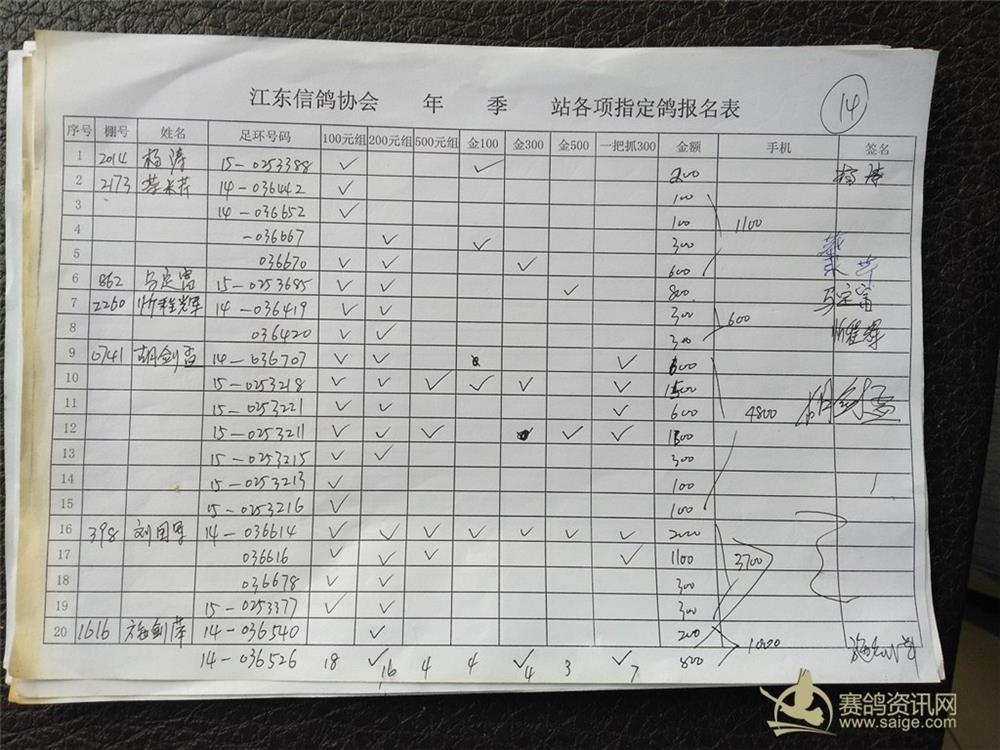 江东信鸽协会 年 季 站各项指定鸽报名表 14
序号 棚号 姓名 足环号码 100元组 200元组 500元组 金100 金300 金500 一把抓300 金额 手机 签名
1 2014 杨涛 15-0253388 ✓ ✓ 200 杨涛
2 2173 14-036442 ✓ 100
3 14-036652 ✓ 100 1100
4 -036667 ✓ ✓ 300
5 036670 ✓ ✓ ✓ 600
6 862 马定富 15-0253685 ✓ ✓ ✓ 800 马定富
7 2260 忻程辉 14-036419 ✓ ✓ 300 600
8 036420 ✓ ✓ 300 忻程辉
9 0741 胡剑孟 14-036707 ✓ ✓ ✓ 600
10 15-0253218 ✓ ✓ ✓ ✓ ✓ ✓ 1500
11 15-0253221 ✓ ✓ ✓ 600 4800 胡剑孟
12 15-0253211 ✓ ✓ ✓ ✓ ✓ 1600
13 15-0253215 ✓ ✓ 300
14 15-0253213 ✓ 100
15 15-0253216 ✓ 100
16 398 刘国军 14-036614 ✓ ✓ ✓ ✓ ✓ ✓ ✓ 2000
17 036616 ✓ ✓ ✓ ✓ 1100 3700
18 036678 ✓ ✓ 300
19 15-0253377 ✓ ✓ 300
20 1616 14-036540 ✓ 200 1000
14-036526 18 ✓ 16 4 4 ✓ 4 3 ✓ 7 800
赛鸽资讯网
www.saige.com